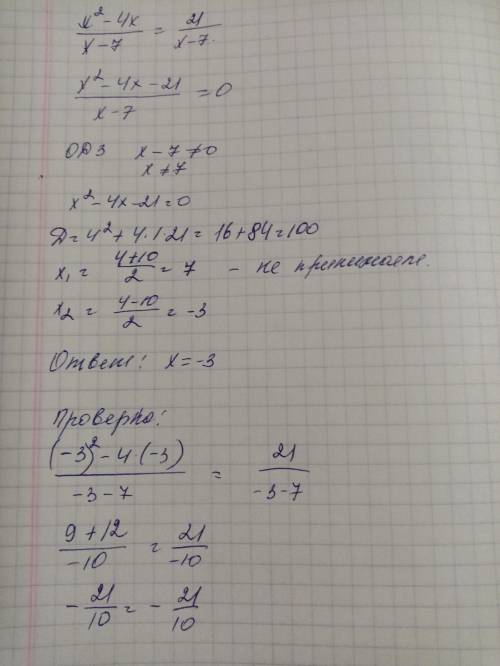 x² - 4x / x - 7 = 21 / x - 7.
x² - 4x - 21 / x - 7 = 0
ОДЗ x - 7 ≠ 0
x ≠ 7
x² - 4x - 21 = 0
Д = 4² + 4·1·21 = 16 + 84 = 100
x₁ = 4+10 / 2 = 7 - не принимаем.
x₂ = 4-10 / 2 = -3
Ответ: x = -3
Проверка:
(-3)² - 4·(-3) / -3 - 7 = 21 / -3 - 7
9 + 12 / -10 = 21 / -10
- 21 / 10 = - 21 / 10